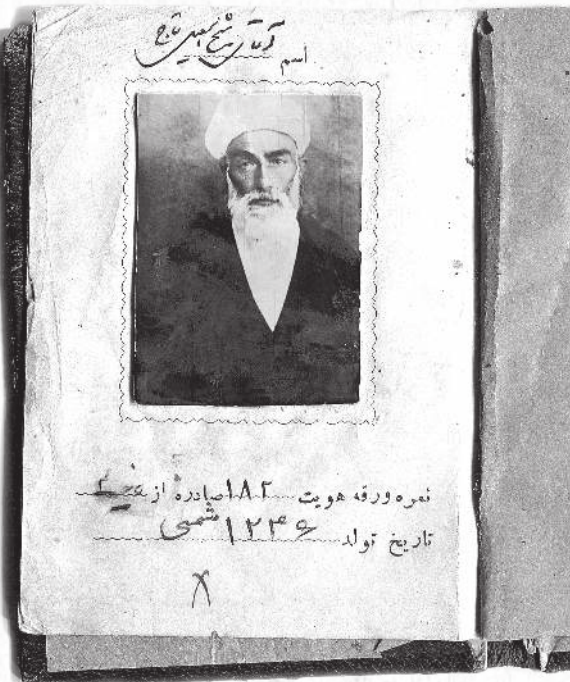 اسم آقای شیخ
نمره ورقه هویت ۱۸۲ صادره از
تاریخ تولد ۱۲۴۶ شمسی